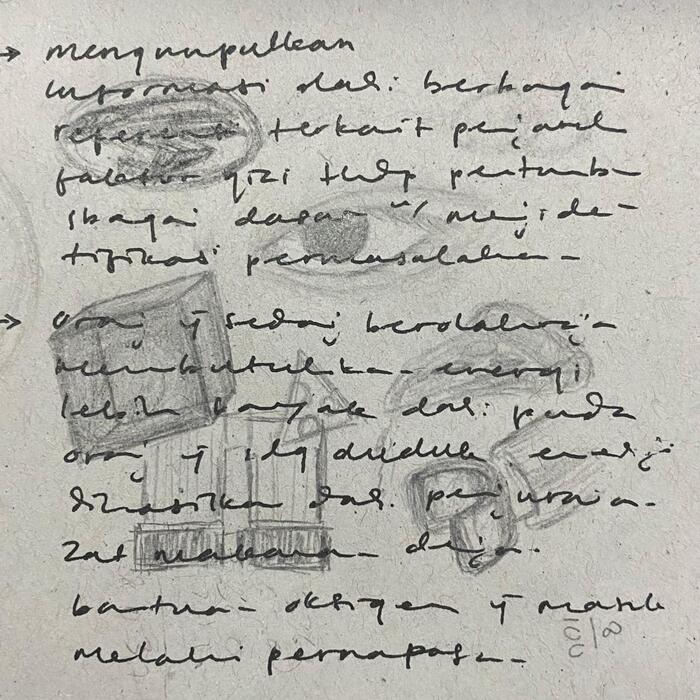 → mengumpulkan
informasi dari berbagai
referensi terkait pengaruh
faktor gizi thdp pertumb-
sbagai dasar u/ mengide-
tifikasi permasalahan-
→ orang yg sedang berolahraga
membutuhkan energi
lebih banyak dari pada
orang yg sdg duduk, energi
dihasilkan dari penguraian
zat makanan dengan
bantuan oksigen yg masuk
melalui pernapasan-